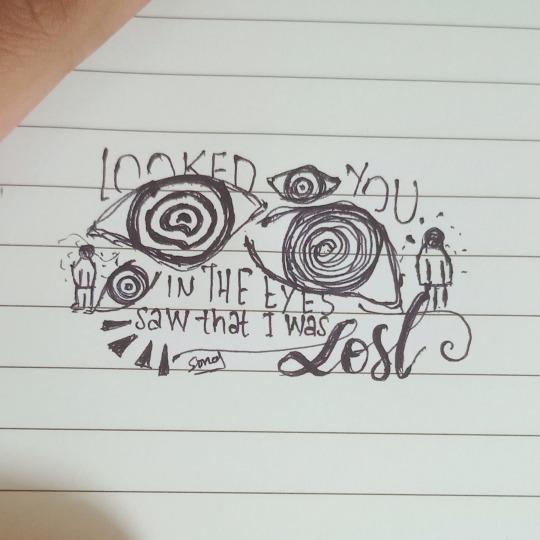 LOOKED YOU
IN THE EYES
saw that I was
Lost
song